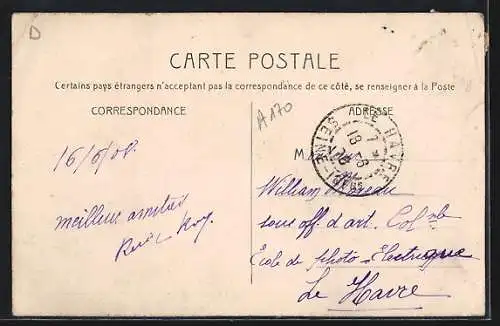 D
CARTE POSTALE
Certains pays étrangers n'acceptent pas la correspondance de ce côté, se renseigner à la Poste
CORRESPONDANCE
ADRESSE
A 170
LE HAVRE
SEINE-INFRE
M
16/6/08.
meilleur amitiés
William
sous off. d'art. Col ale
École de photo-Électrique
Le Havre